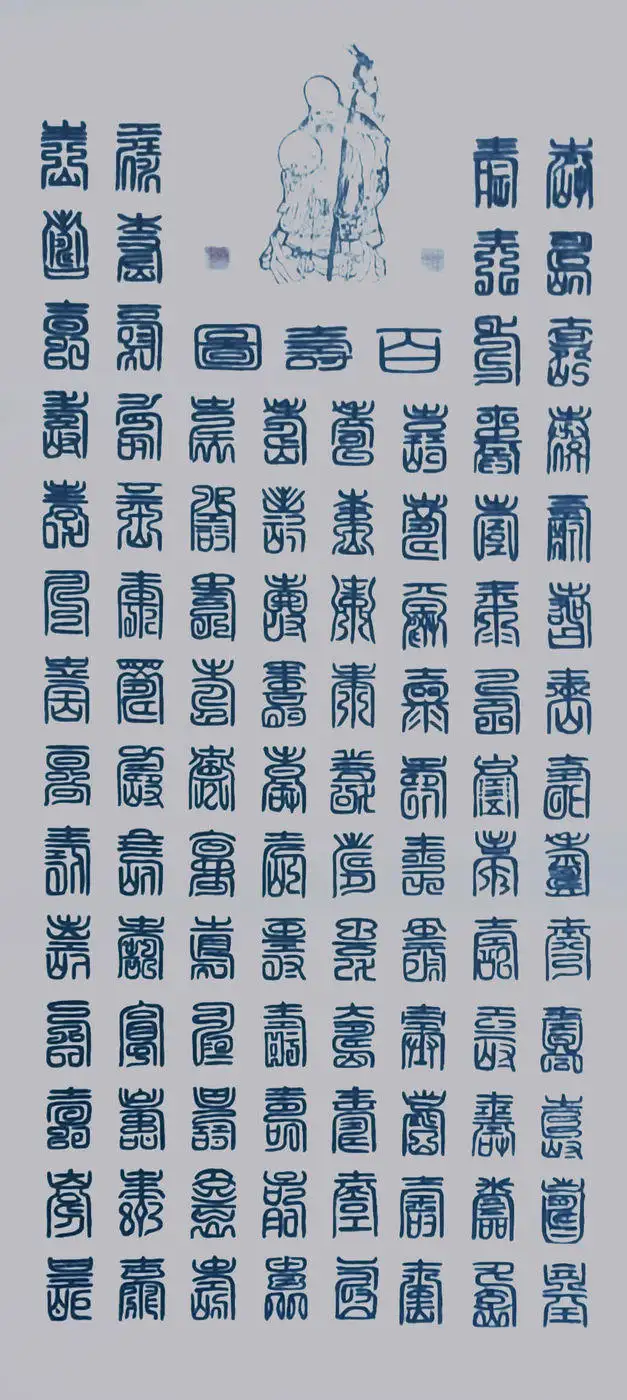 百壽圖
壽壽壽壽壽壽壽壽壽壽壽壽壽壽
壽壽壽壽壽壽壽壽壽壽壽壽壽壽
壽壽壽壽壽壽壽壽壽壽壽
壽壽壽壽壽壽壽壽壽壽壽
壽壽壽壽壽壽壽壽壽壽壽
壽壽壽壽壽壽壽壽壽壽壽
壽壽壽壽壽壽壽壽壽壽壽壽壽壽
壽壽壽壽壽壽壽壽壽壽壽壽壽壽